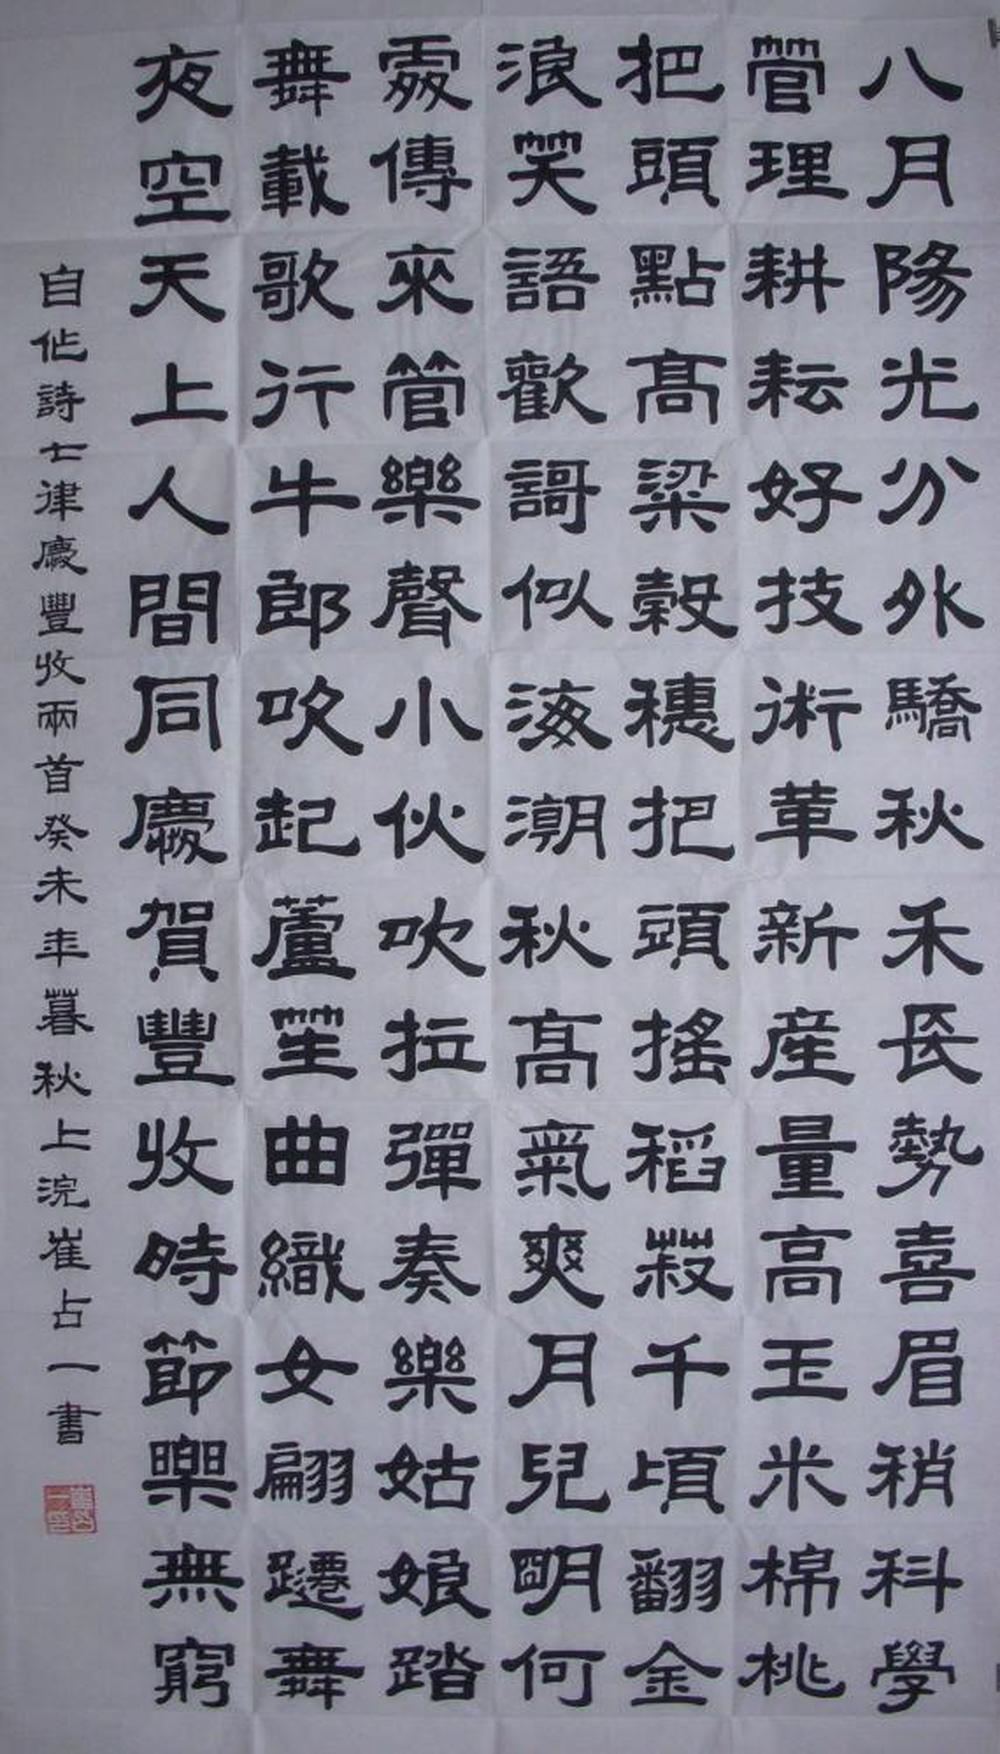 八月陽光分外驕秋禾長勢喜眉稍科學
管理耕耘好技術革新産量高玉米棉桃
把頭點高粱穀穗把頭搖稻菽千頃翻金
浪笑語歡謌似海潮秋高氣爽月兒明何
處傳來管樂聲小伙吹拉彈奏樂姑娘踏
舞載歌行牛郎吹起蘆笙曲織女翩躚舞
夜空天上人間同慶賀豐收時節樂無窮
自作詩七律慶豐收兩首癸未年暮秋上浣崔占一書